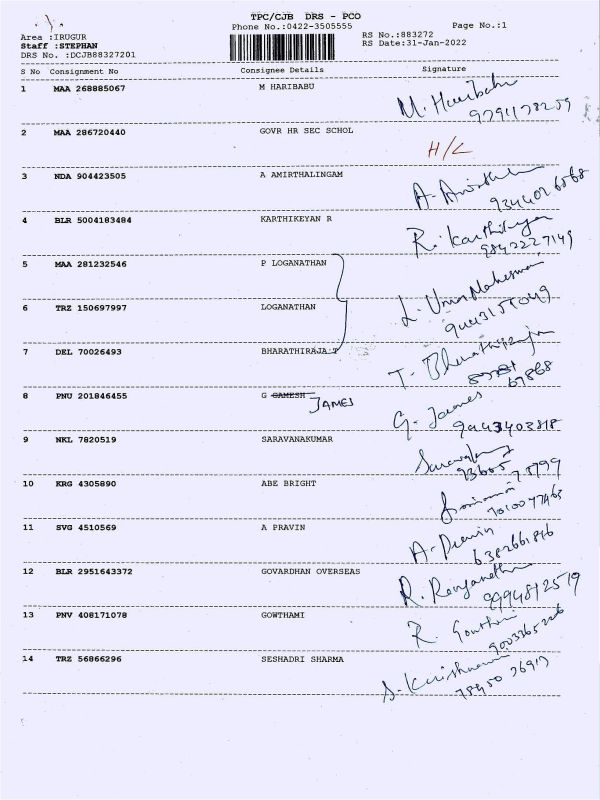 TPC/CJB DRS - PCO
Phone No.:0422-3505555 Page No.:1
Area :IRUGUR RS No.:883272
Staff :STEPHAN RS Date:31-Jan-2022
DRS No. :DCJB88327201
S No Consignment No Consignee Details Signature
1 MAA 268885067 M HARIBABU M. Haribabu
9791178259
2 MAA 286720440 GOVR HR SEC SCHOL
H/L
3 NDA 904423505 A AMIRTHALINGAM
4 BLR 5004183484 KARTHIKEYAN R R. Karthikeyan
9842227149
5 MAA 281232546 P LOGANATHAN
6 TRZ 150697997 LOGANATHAN L. Uma Maheswari
7 DEL 70026493 BHARATHIRAJA T T. Bharathiraja
8 PNU 201846455 G GAMESH JAMES G. James
9443403818
9 NKL 7820519 SARAVANAKUMAR
10 KRG 4305890 ABE BRIGHT
11 SVG 4510569 A PRAVIN A. Pravin
12 BLR 2951643372 GOVARDHAN OVERSEAS R. Renganathan
13 PNV 408171078 GOWTHAMI R. Gowthami
14 TRZ 56866296 SESHADRI SHARMA